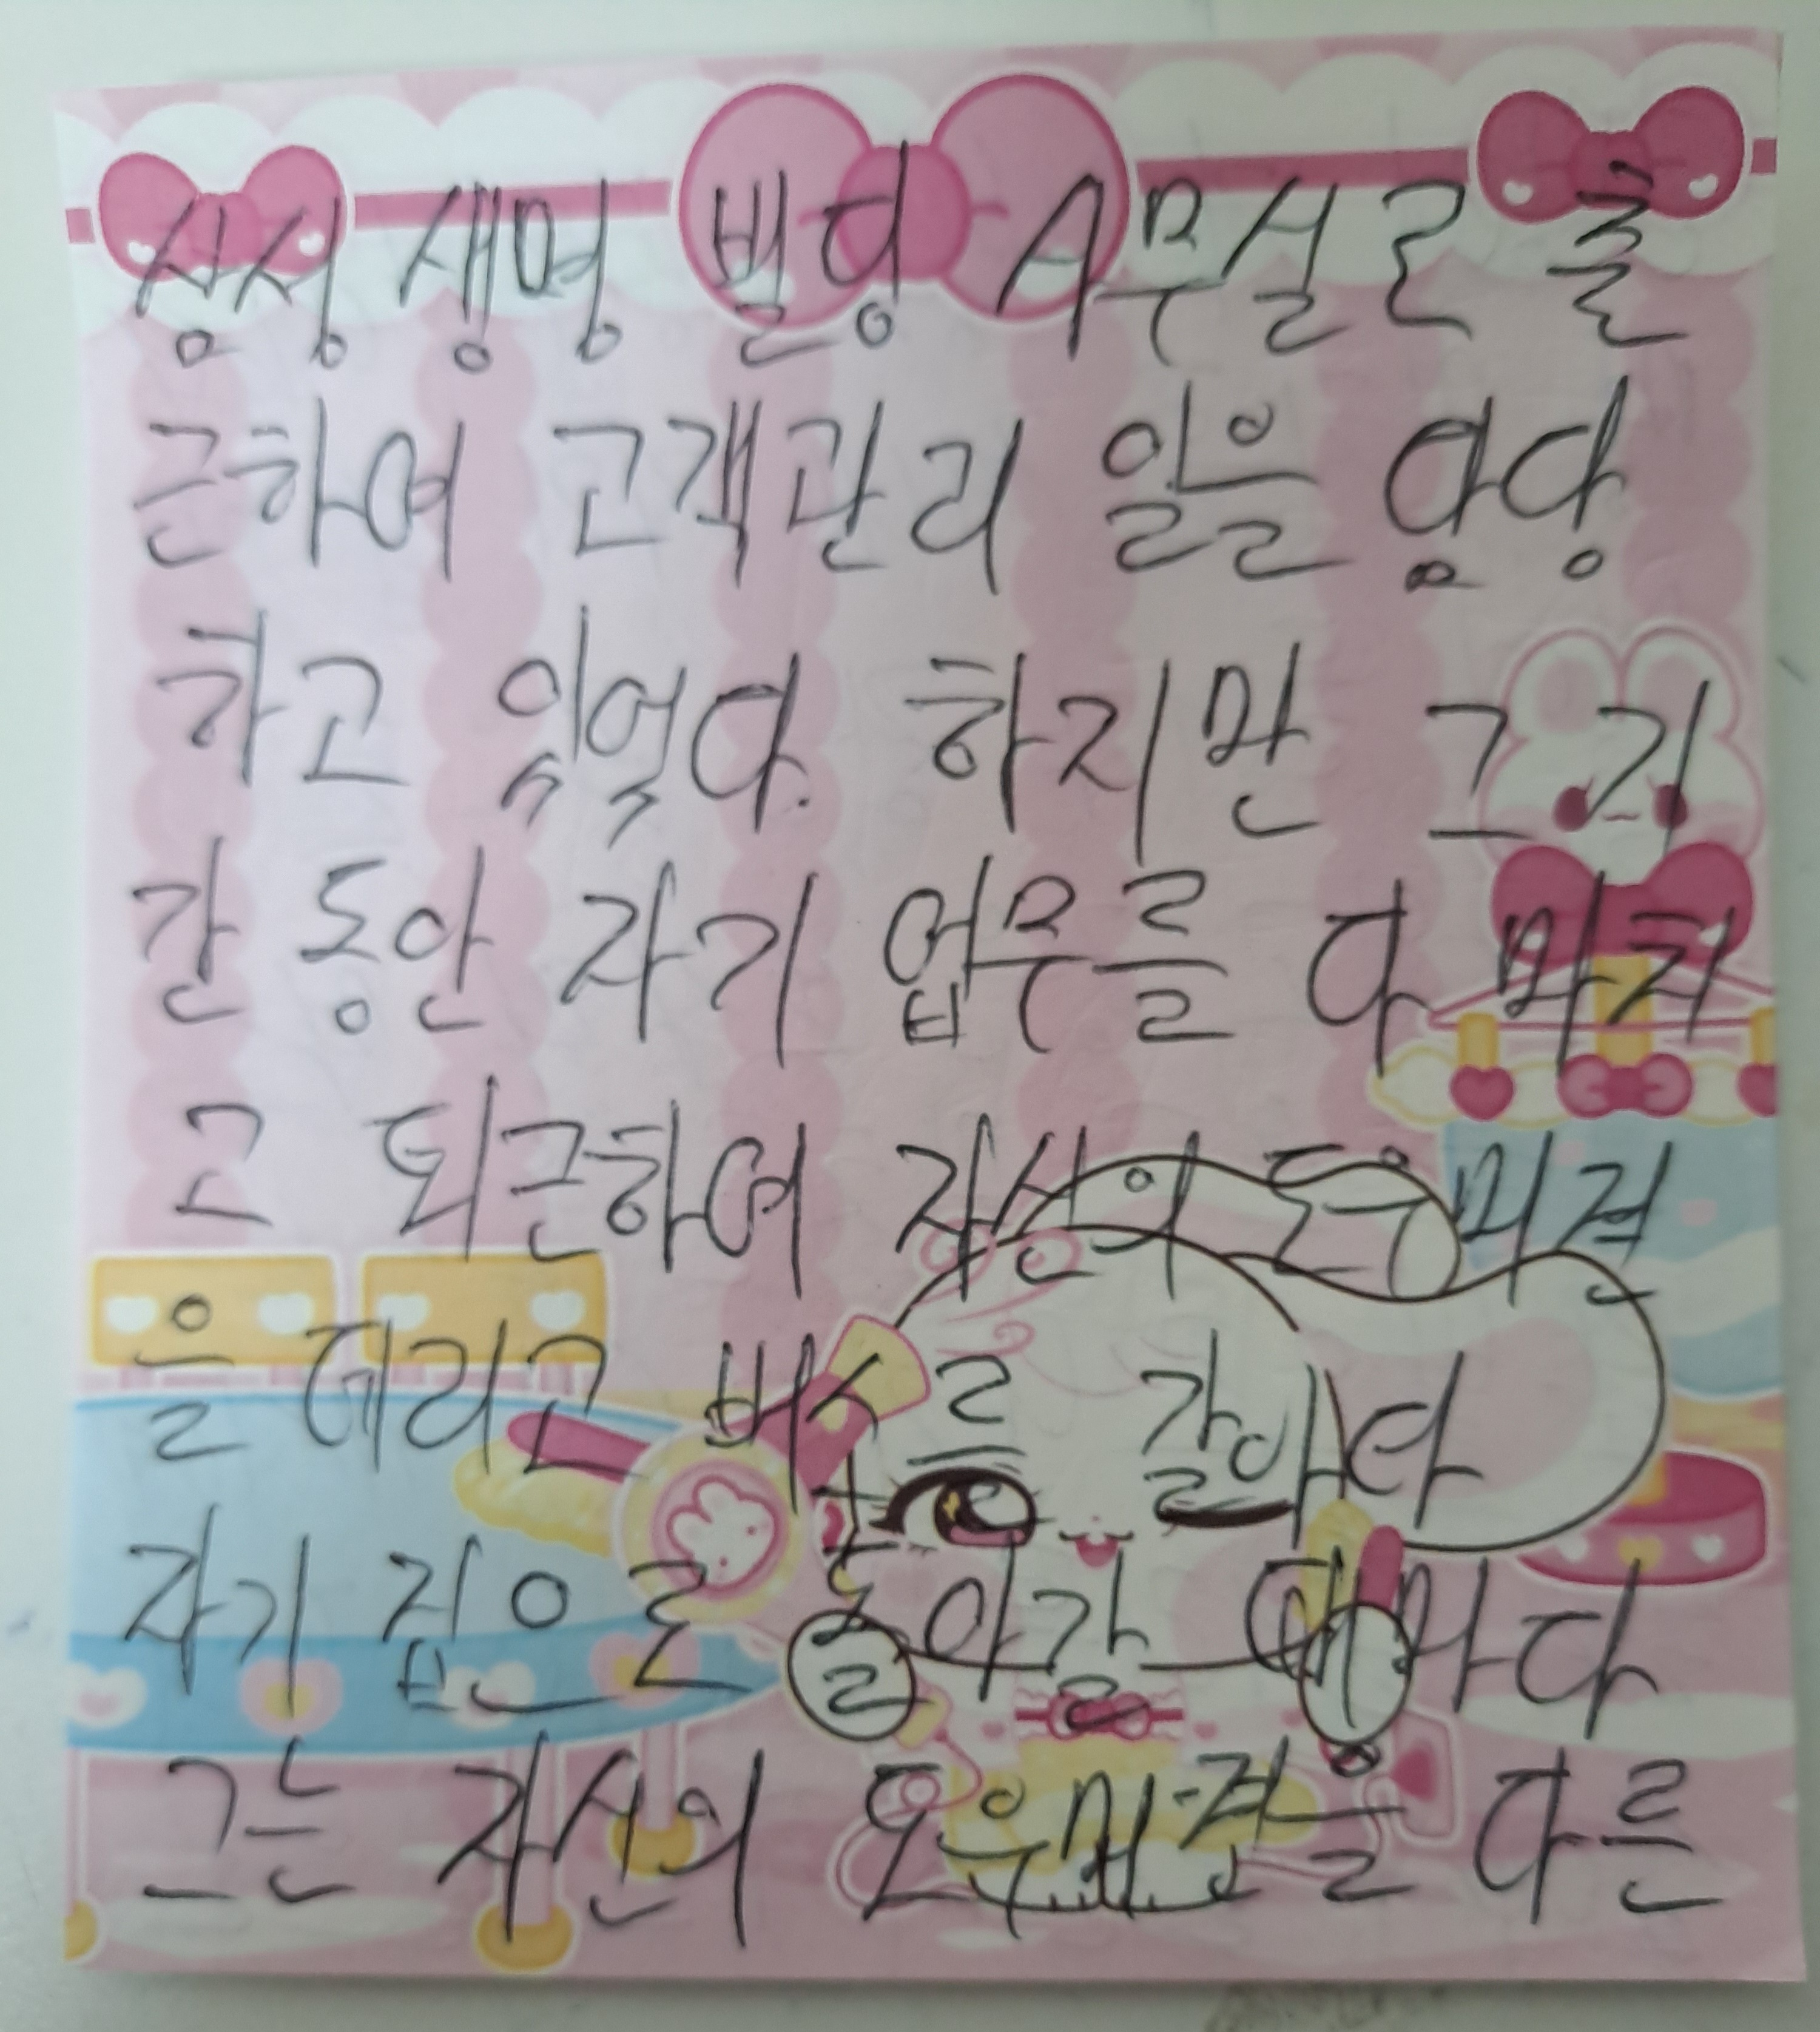 삼성생명 빌딩 사무실로 출
근하여 고객관리 일을 담당
하고 있었다. 하지만 그 기
간 동안 자기 업무를 다 마치
고 퇴근하여 자신의 도우미견
을 데리고 버스를 갈아타
자기 집으로 돌아갈 때마다
그는 자신의 도우미견을 다른